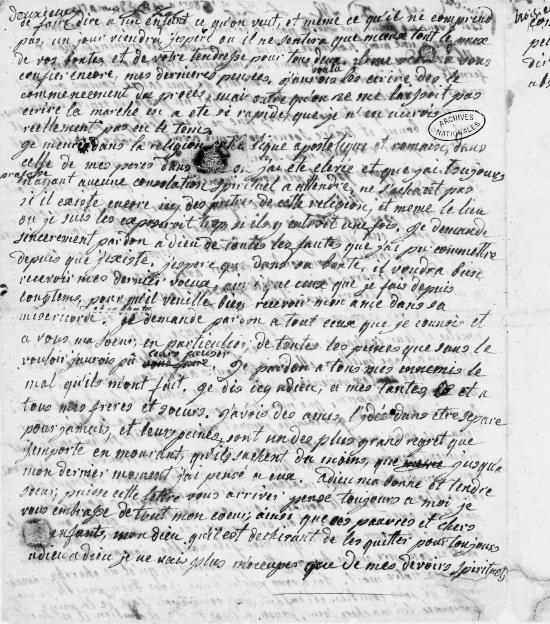 de faire dire a un enfant ce qu'on veut, et meme ce qu'il ne comprend
pas, un jour viendra j'espere ou il ne sentira que mieux tout le prix
de vos bontés et de votre tendresse pour tous deux. il me reste a vous
confier encore, mes dernieres pensées, j'aurois
voulu
les ecrire dès le
commencement du procès, mais outre qu'on ne me laissoit pas
ecrire la marche en a eté si rapide, que je n'en aurois
reellement pas eu le tems.
ARCHIVES
NATIONALES
je meurs dans la religion catholique apostolique et romaine, dans
celle de mes peres dans
ou j'ai été elevée et que j'ai toujours
professée
n'ayant aucune consolation spirituel a attendre, ne sachant pas
si il existe encore ici des prêtres de cette religion, et même le lieu
ou je suis les exposeroit trop si ils y entroit une fois, je demande
sincerement pardon a dieu de toutes les fautes que j'ai pu commettre
depuis que j'existe, j'espere que dans sa bonté, il voudra bien
recevoir mes dernier voeux, ainsi que ceux que je fais depuis
longtems, pour qu'il veuille bien recevoir mon ame dans sa
misericorde
et sa bonté
. je demande pardon a tout ceux que je connois et
a vous ma soeur, en particulier, de toutes les peines que sans le
vouloir j'aurois pu
leurs causer
je pardone a tous mes ennemis le
mal qu'ils m'ont fait. je dis ici adieu, a mes tantes et a
tous mes freres et soeurs. j'avois des amis, l'idée d'en etre separé
pour jamais, et leurs peines, sont un des plus grand regret que
j'emporte en mourant, qu'ils sachent du moins, que jusqu'a
mon dernier moment j'ai pensé a eux. adieu ma bonne et tendre
soeur, puisse cette lettre vous arriver, pensé toujours a moi, je
vous embrasse de tout mon coeur, ainsi que ces pauvres et chers
enfants, mon dieu qu'il est dechirant de les quitter pour toujours
adieu adieu, je ne vais plus m'occuper que de mes devoirs spirituels